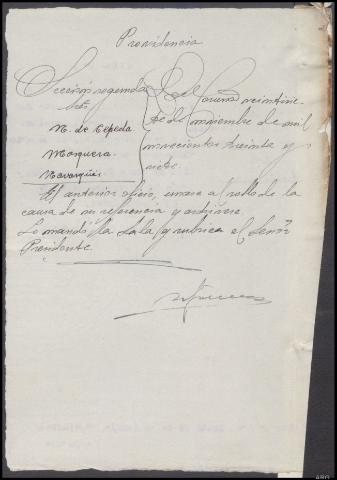 Providencia
Sección segunda
Sres.
N. de Cepeda
Mosquera
La Coruña veintisie-
te de noviembre de mil
novecientos treinta y
siete.
El anterior oficio, unase al rollo de la
causa de su referencia y archívese
Lo mandó la Sala y rubrica el Señor
Presidente